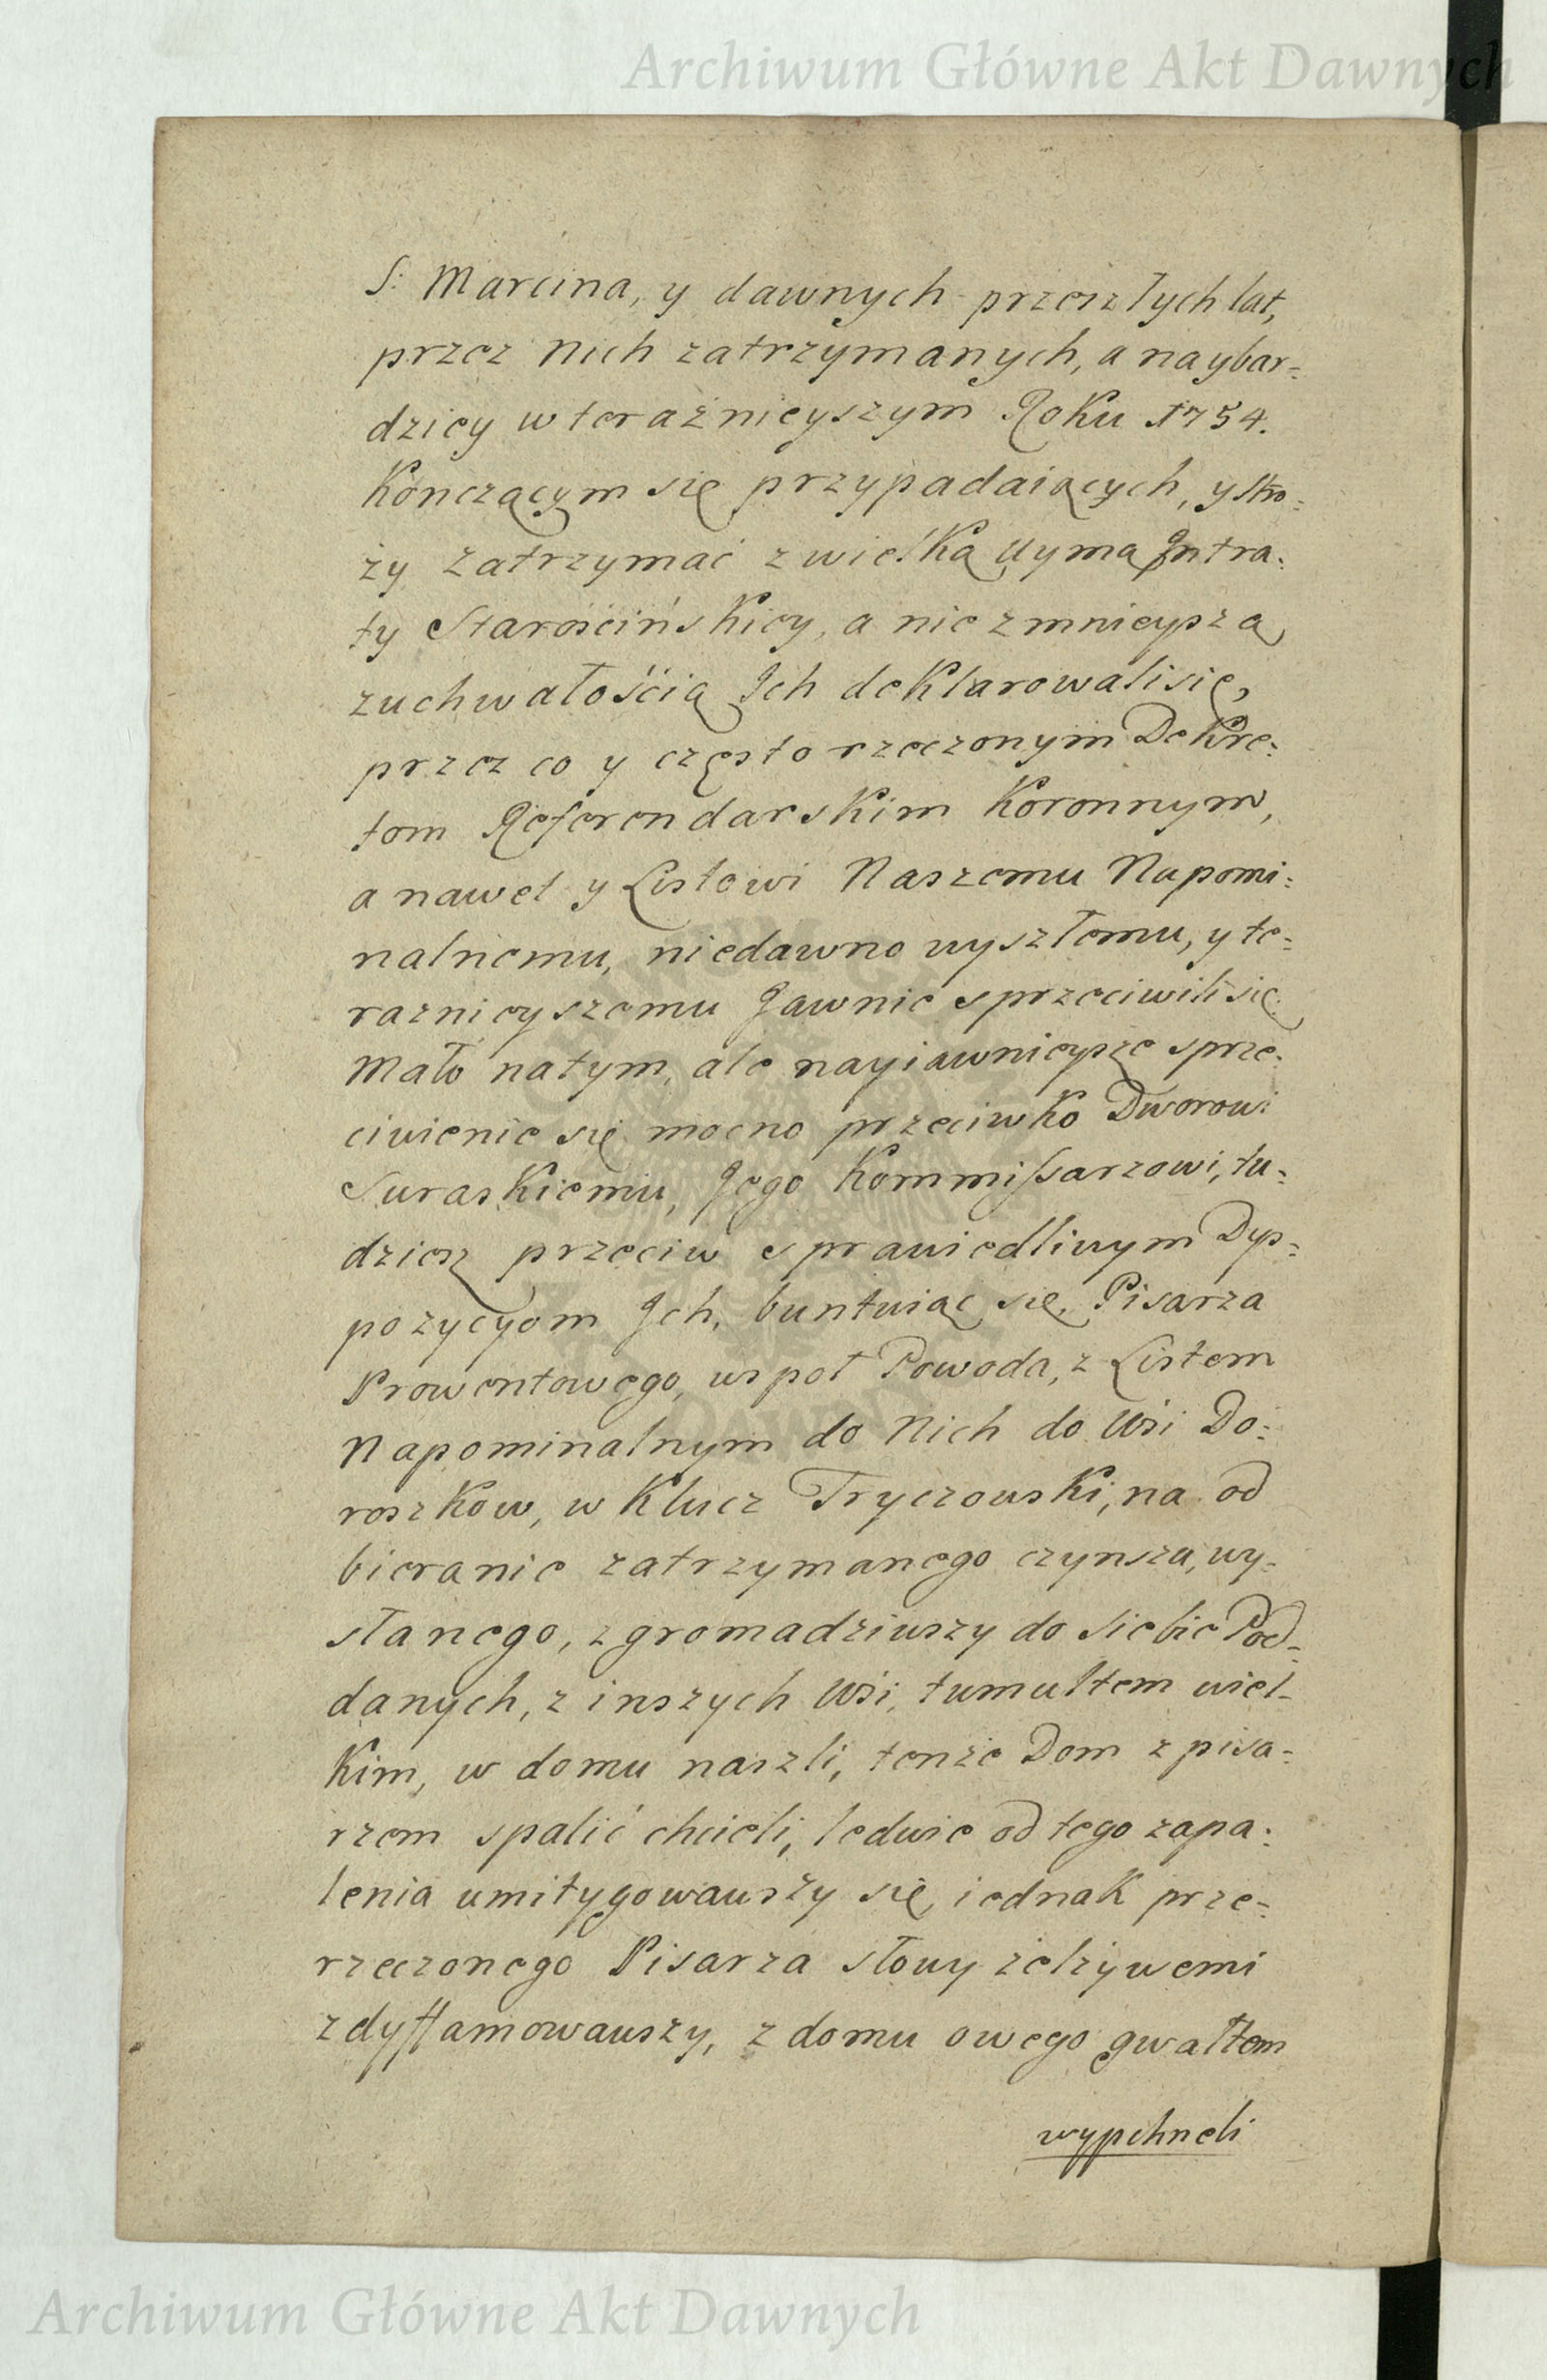 Archiwum Główne Akt Dawnych
S: Marcina, y dawnych przeszłych lat,
przez nich zatrzymanych, a naybar=
dziey w teraźnieyszym Roku 1754.
Kończącym się przypadaiących, y stro=
ży zatrzymać z wielką uymą Intra=
ty Starościńskiey, a nie z mnieyszą
zuchwałością Ich deklarowali się,
przez co y często rzeczonym Dekre=
tom Referendarskim Koronnym,
a nawet y Listowi Naszemu Napomi=
nalnemu, niedawno wyszłemu, y te=
raznieyszemu Jawnie sprzeciwili się.
Mało natym, ale nayiawnieysze sprze=
ciwienie się mocno przeciwko Dworowi
Suraskiemu, Jego Kommissarzowi, tu=
dziesz przeciw sprawiedliwym Dys=
pozycyom Ich, buntuiąc się, Pisarza
Prowentowego, wspoł Powoda, z Listem
Napominalnym do Nich do Wsi Do=
roszkow, w Klucz Tryczowski, na od
bieranie zatrzymanego czynsza, wy=
słanego, zgromadziwszy do siebie Pod=
danych, z inszych Wsi, tumultem wiel=
kim, w domu naszli, tenże Dom z pisa=
rzem spalić chcieli, ledwie od tego zapa=
lenia umitygowawszy się, iednak prze=
rzeczonego Pisarza słowy zelżywemi
zdyffamowawszy, z domu owego gwałtem
wypchneli
Archiwum Główne Akt Dawnych